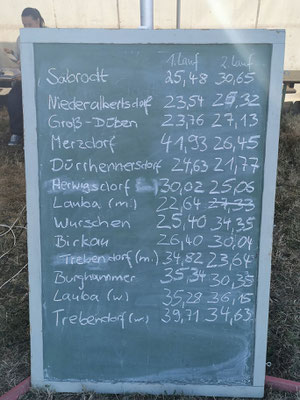 1. Lauf 2. Lauf
Sabrodt 25,48 30,65
Niederalbertsdorf 23,54 25,32
Groß-Düben 23,76 27,13
Merzdorf 41,93 26,45
Dürrhennersdorf 24,63 21,77
Herwigsdorf 30,02 25,06
Lauba (m.) 22,64
Wurschen 25,40 34,35
Birkau 26,40 30,04
Trebendorf (m.) 34,82 23,64
Burghammer 35,34 30,35
Lauba (w) 35,28 36,15
Trebendorf (w) 39,71 34,63